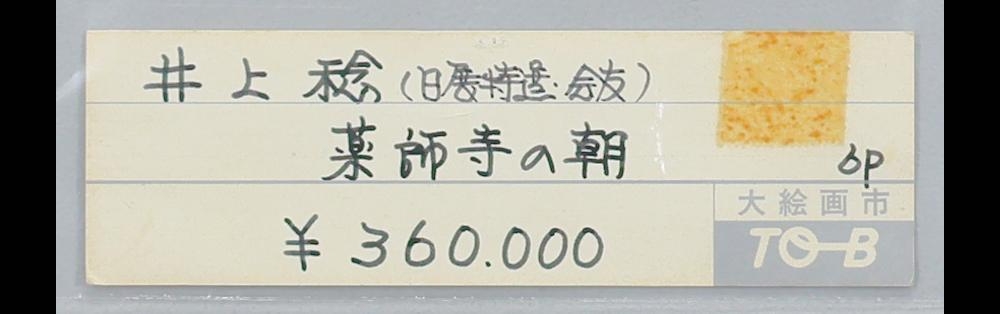 井上稔（日展特選・会友）
薬師寺の朝
6P
¥360.000
大絵画市
TO-B